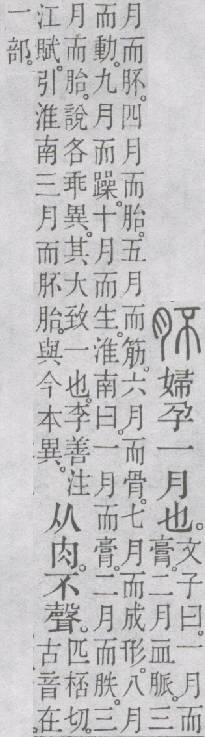 肧
婦孕一月也。
文子曰。一月而
膏。二月血脈。三
月而肧。四月而胎。五月而筋。六月而骨。七月而成形。八月
而動。九月而躁。十月而生。淮南曰。一月而膏。二月而胅。三
月而胎。說各乖異。其大致一也。李善注
江賦引淮南三月而肧胎。與今本異。
从肉。不聲。
匹桮切。
古音在
一部。